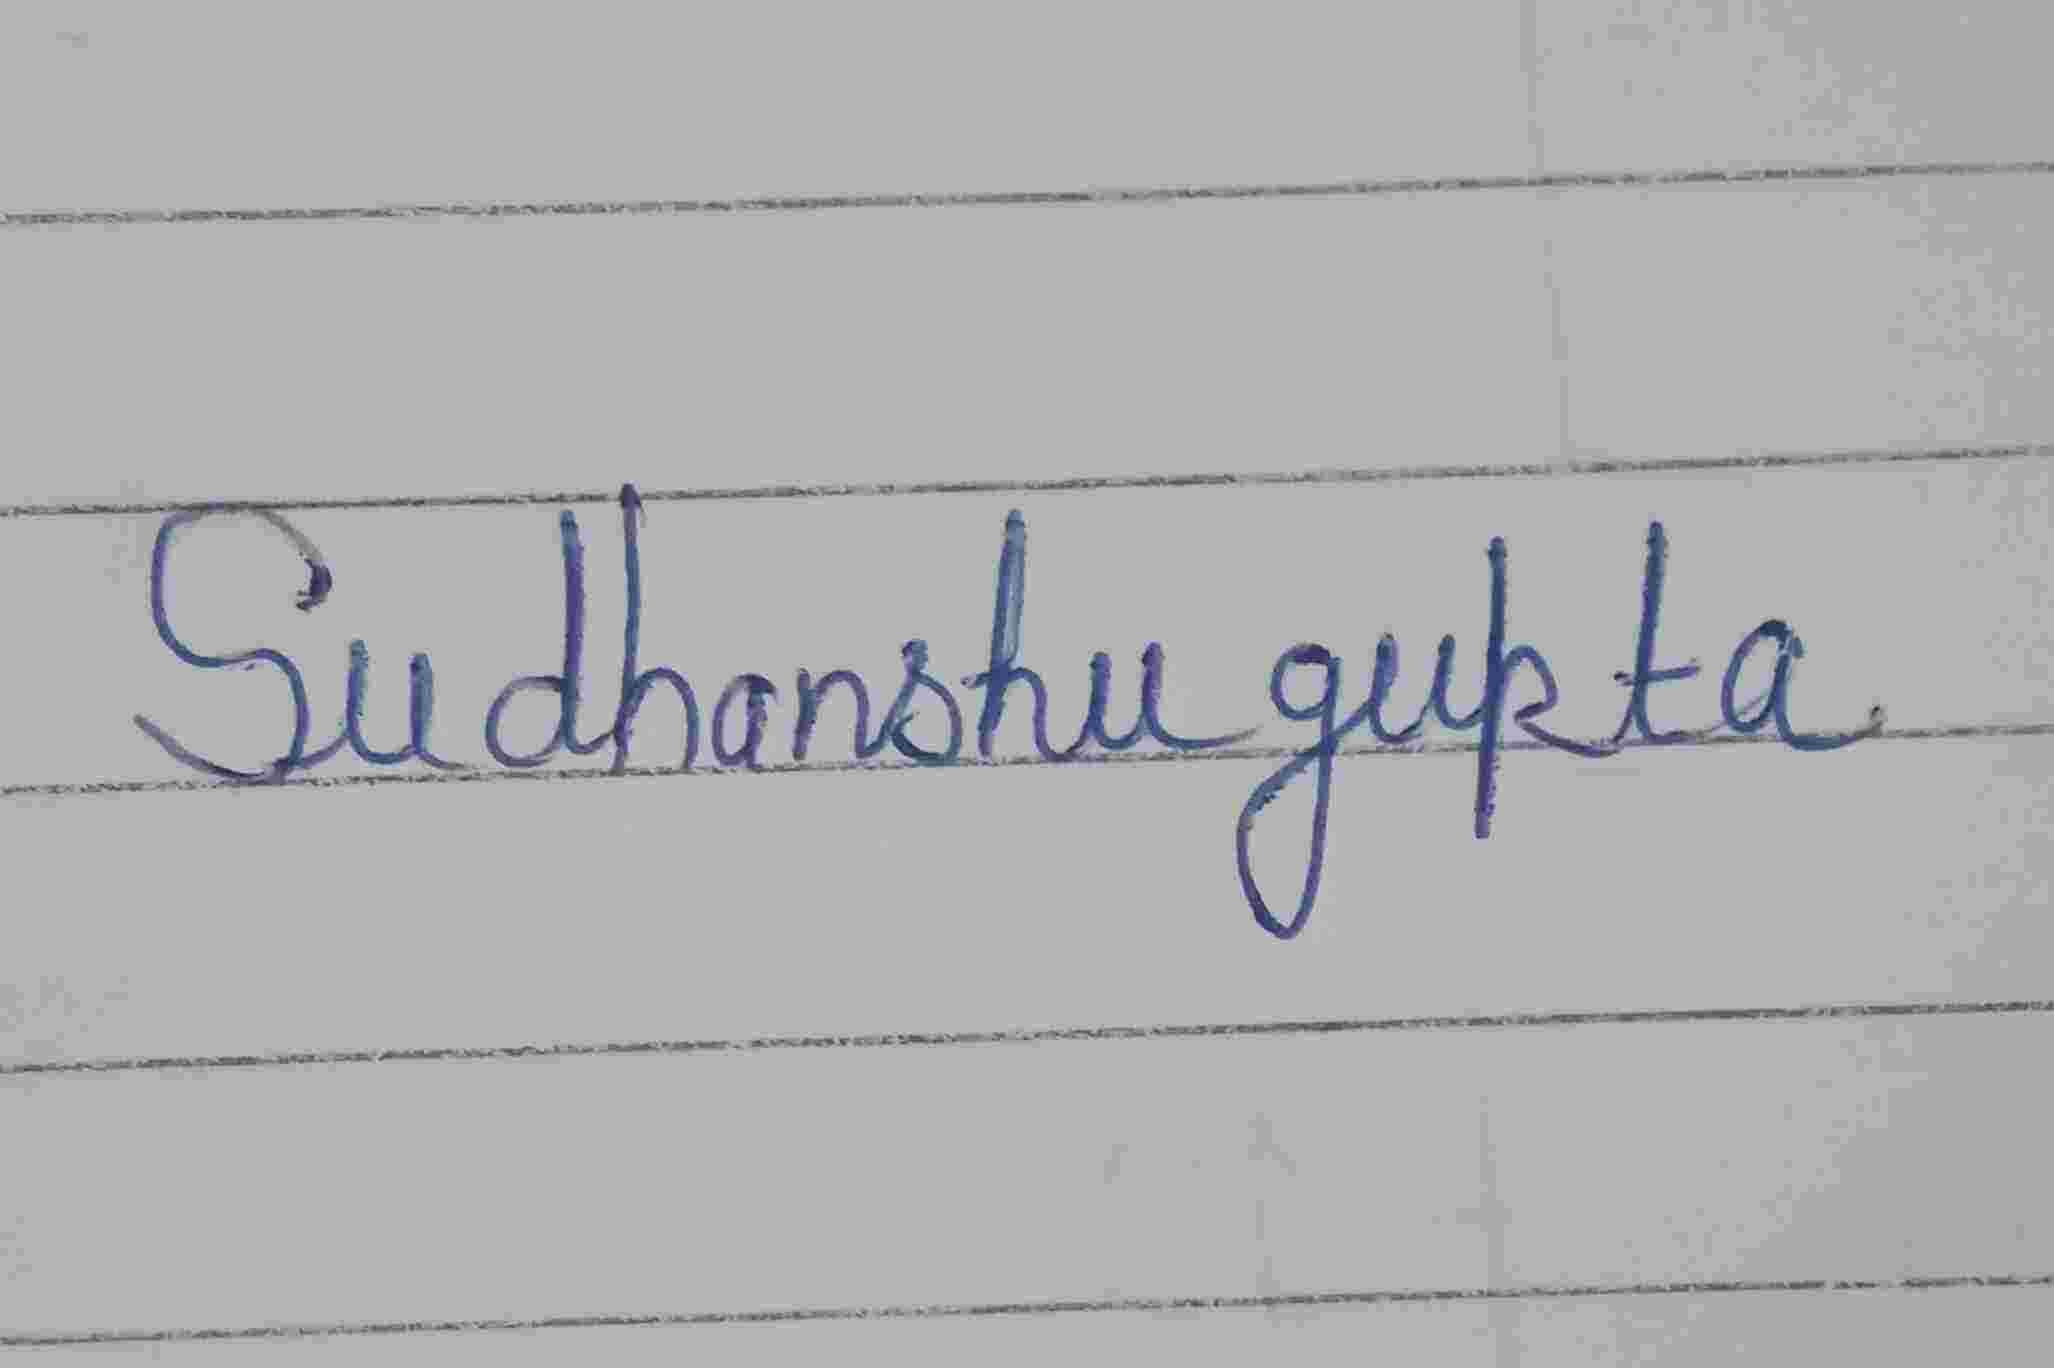 Sudhanshu gupta